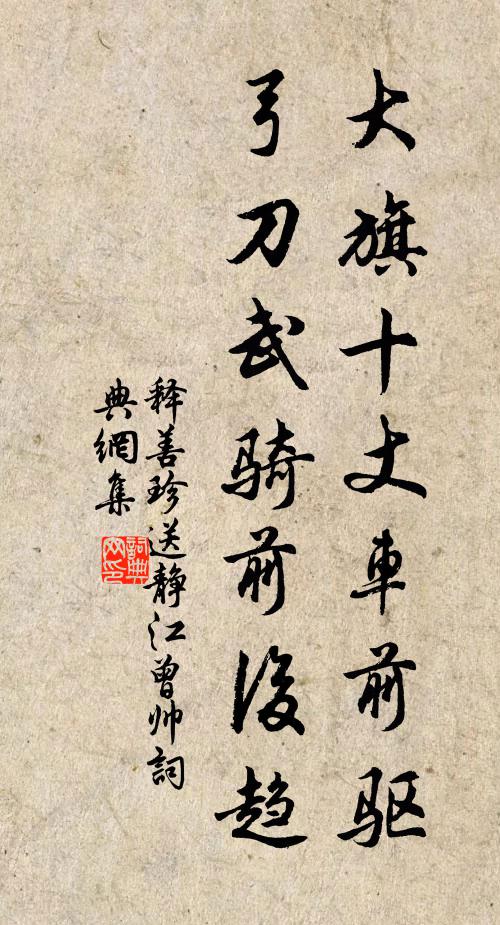 大旗十丈車前驱
弓刀武骑前後趋
释善珍送静江曾帅詞
典網集
詞典
网印